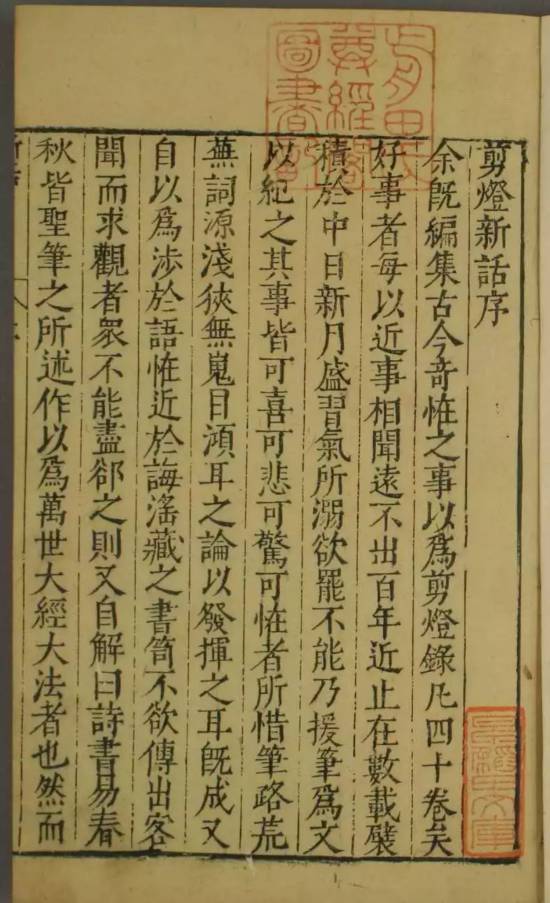 剪燈新話序
余旣編集古今奇恠之事以爲剪燈錄凡四十卷矣
好事者每以近事相聞遠不出百年近止在數載襞
積於中日新月盛習氣所溺欲罷不能乃援筆爲文
以紀之其事皆可喜可悲可驚可恠者所惜筆路荒
蕪詞源淺狹無嵬目澒耳之論以發揮之耳旣成又
自以爲涉於語恠近於誨滛藏之書笥不欲傳出客
聞而求觀者衆不能盡郤之則又自解曰詩書易春
秋皆聖筆之所述作以爲萬世大經大法者也然而